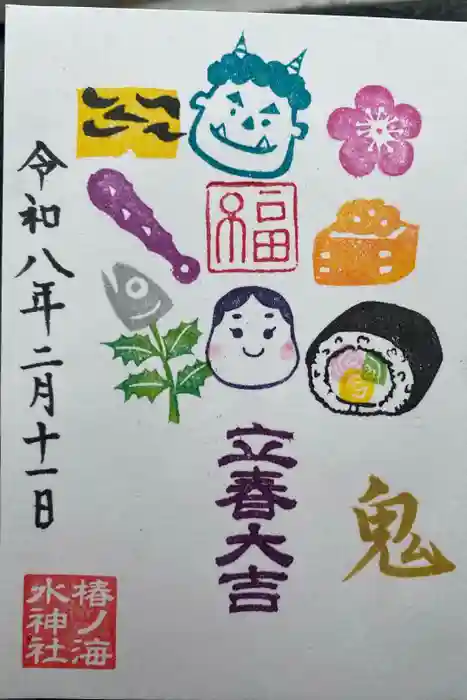 令和八年二月十一日
福
立春大吉
鬼
椿ノ海
水神社